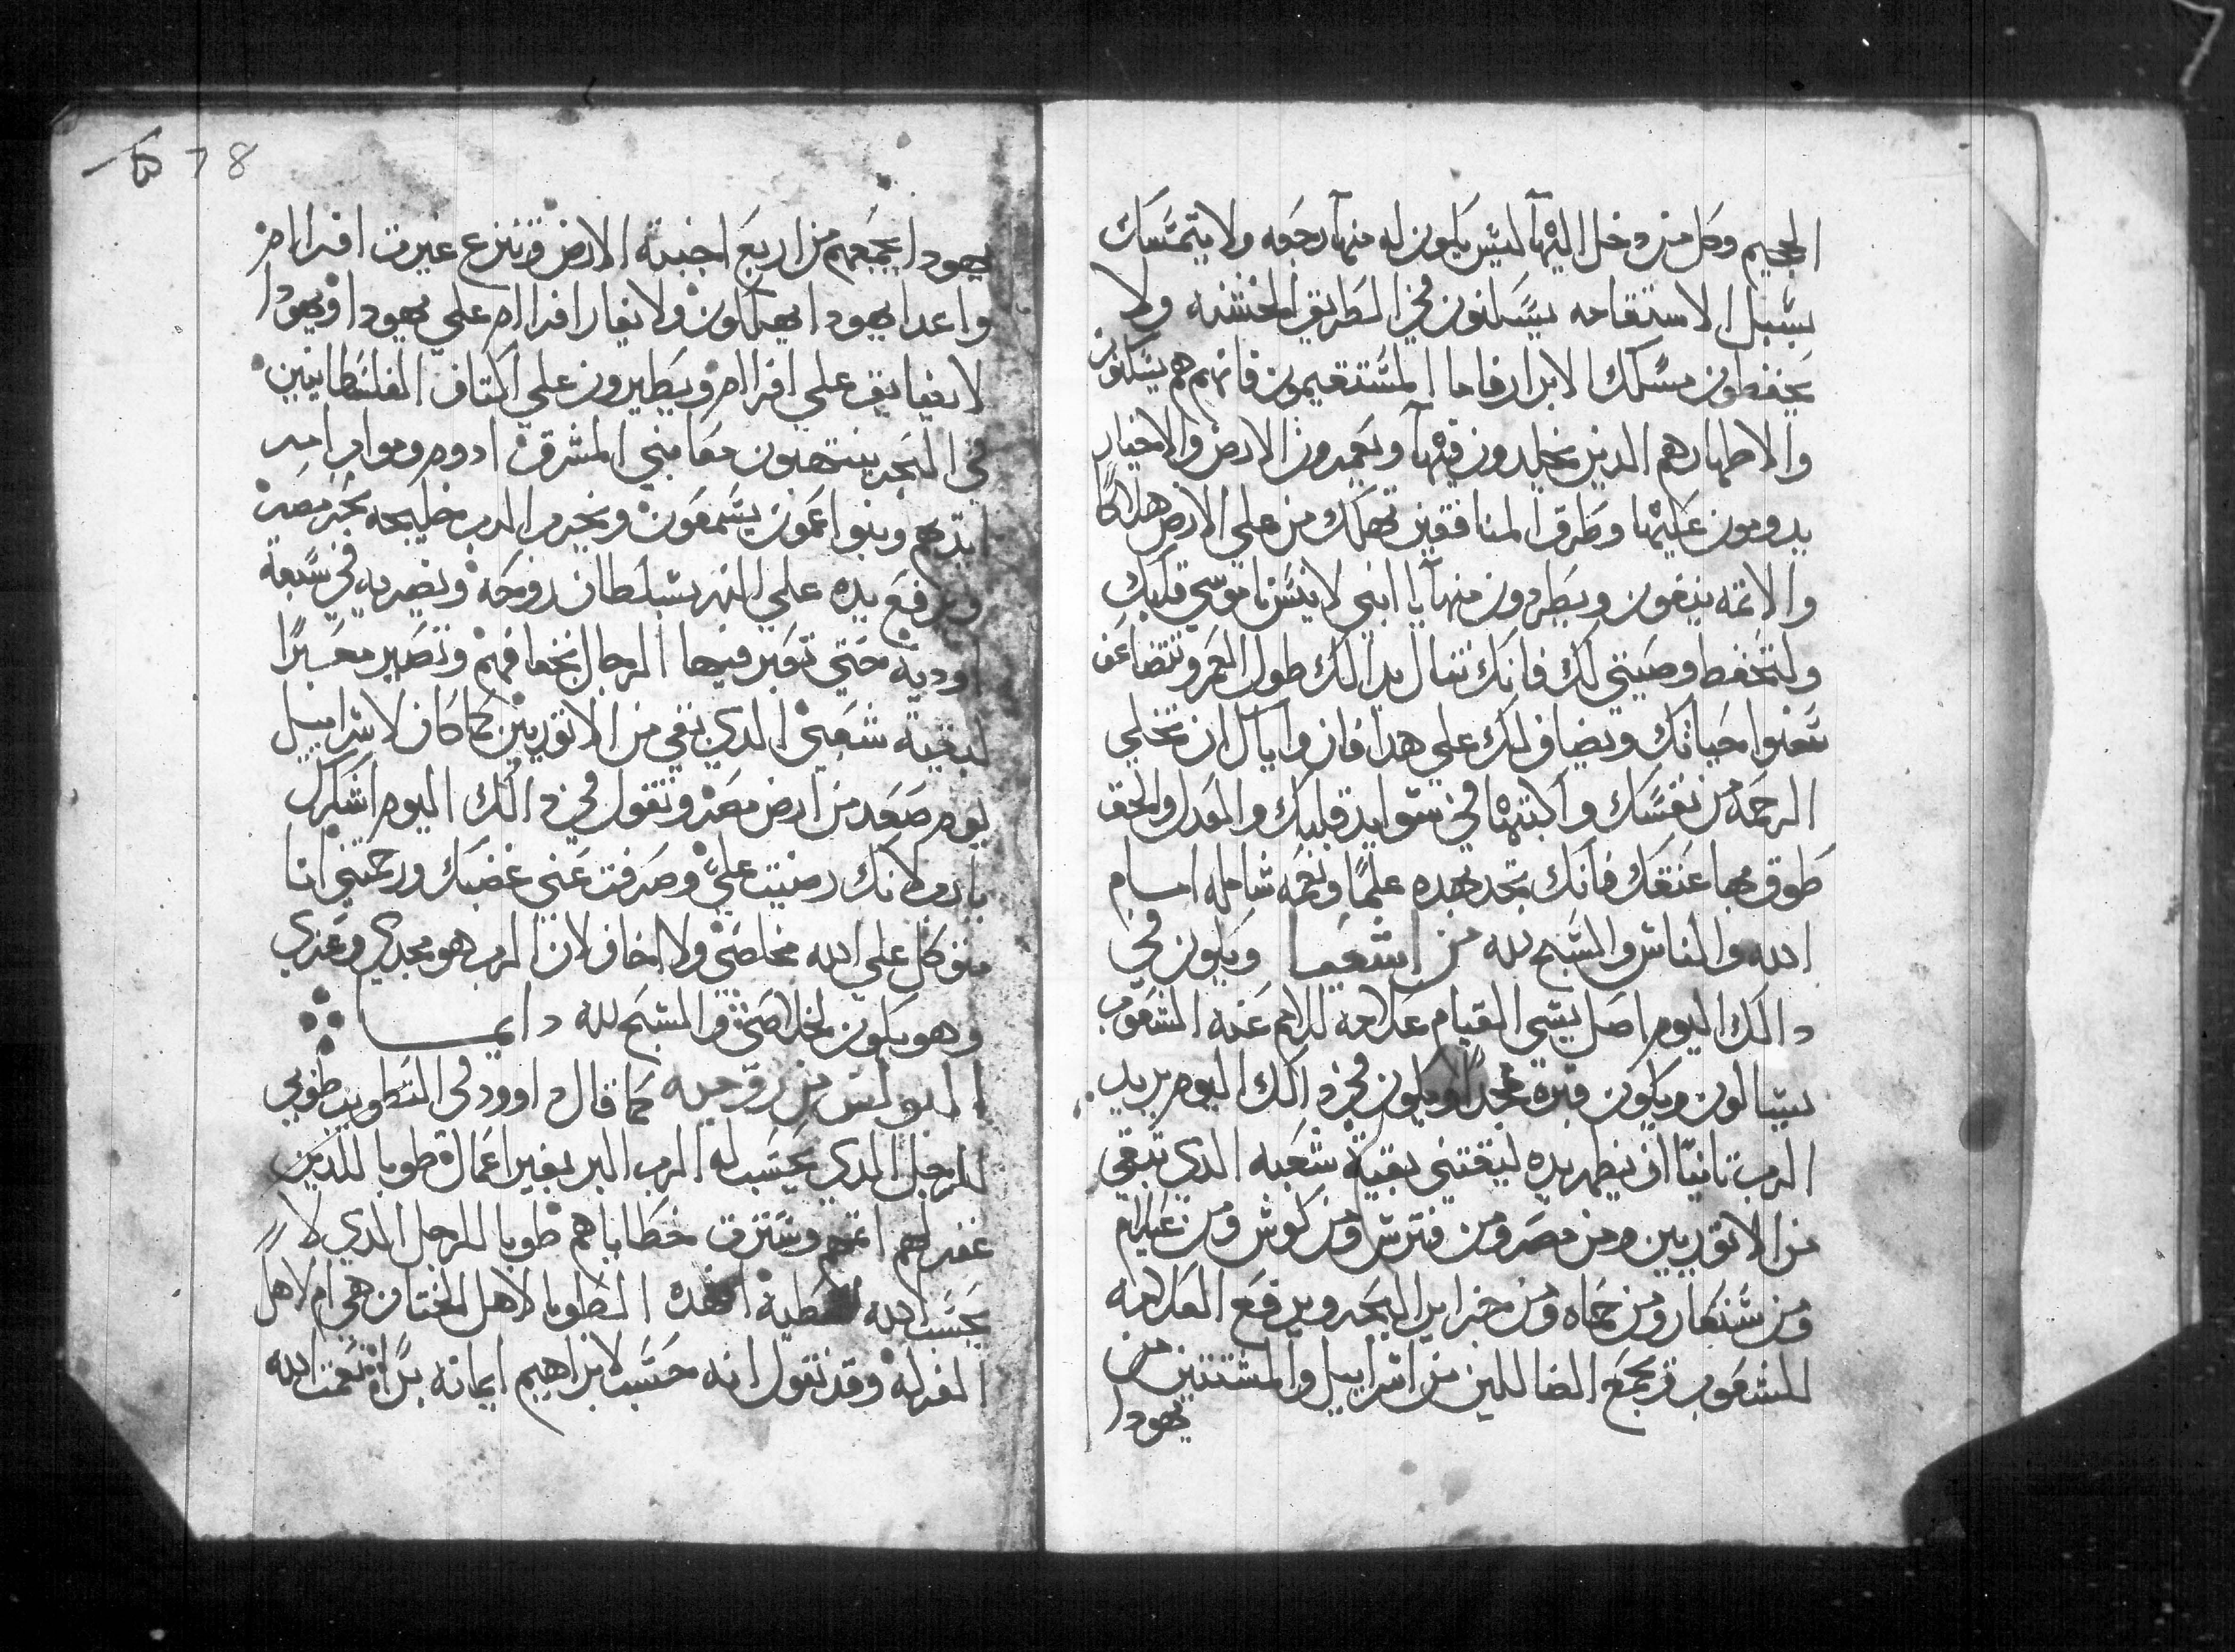 الجحيم وكل من دخل اليها ليس يكون له منها رجعه ولا يتمسك
بسبيل الاستقامه يسلكون في الطريق الخشنه ولا
يحفظون مسلك الابرار فاما المستقيمون فانهم هم يسكنون
والاطهار هم الدين يخلدون فيها ويعمرون الارض والاخيار
يدومون عليها وطرق المنافقين تهلك من علي الارض هلاكا
والاتمه ينفون ويطردون منها يا ابني لا تنس ناموسي قلبك
ولتحفط وصيتي لك فانك تنال بدالك طول العمر وتتضاعف
سنوا حياتك ويضاف لك علي هدا فان واياك ان تخلي
الرحمه من نفسك واكتبها في سوايد قلبك والعدل والحق
طوق بهما عنقك فانك تجد بهده علما ونعمه شامله امام
الله والناس والسبح لله من اشعيا ويكون في
دالك اليوم اصل يسي القيام علامه للامم عنه الشعوب
يسالون ويكون قبره مجدا ويكون في دالك اليوم يريد
الرب تانيا ان يظهر يده ليقتني بقية شعبه الدي تبقي
من الاتوريين ومن مصر ومن فترس ومن كوش ومن عيلام
ومن شنعار ومن حماه ومن جزاير البحر ويرفع العلامه
للشعوب ويجمع الضاللين من اسراييل والمشتتين من
يهودا
78
يهودا يجمعهم من اربع اجنبة الارض وتنزع غيرت افرام
واعدا يهودا يهلكون ولا يغار افرام علي يهودا ويهودا
لا يضايق علي افرام ويطيرون علي اكتاف الفلسطانيين
في البحر ينتهبون معا بني المشرق ادوم ومواب امد
ايديهم وبنوا عمون يسمعون ويخرب الرب خليجه بحر مصر
ويرفع يده علي النهر بسلطان روحه ويضربه في سبعة
اوديه حتي تعبر فيها الرجال بخفافهم وتصير معبرا
لبقية شعبي الدي بقي من الاتوريين كما كان لاسراييل
يوم صعد من ارض مصر وتقول في دالك اليوم اشكرك
يا رب لانك رضيت علي وصرفت عني غضبك ورحمتني انا
متوكل علي الله مخلصي ولا اخاف لان الرب هو مجدي وعزي
وهو يكون لخلاصي والسبح لله دايما
البولس من روميه كما قال داوود في التطويب طوبي
للرجل الدي يحسب له الرب البر بغير اعمال طوبا للدين
غفر لهم اتمهم وسترت خطاياهم طوبا للرجل الدي لا
يحسب الله خطية افهده الطوبا لاهل الختان هي ام لاهل
الغرله وقد نقول انه حسب لابراهيم ايمانه برا